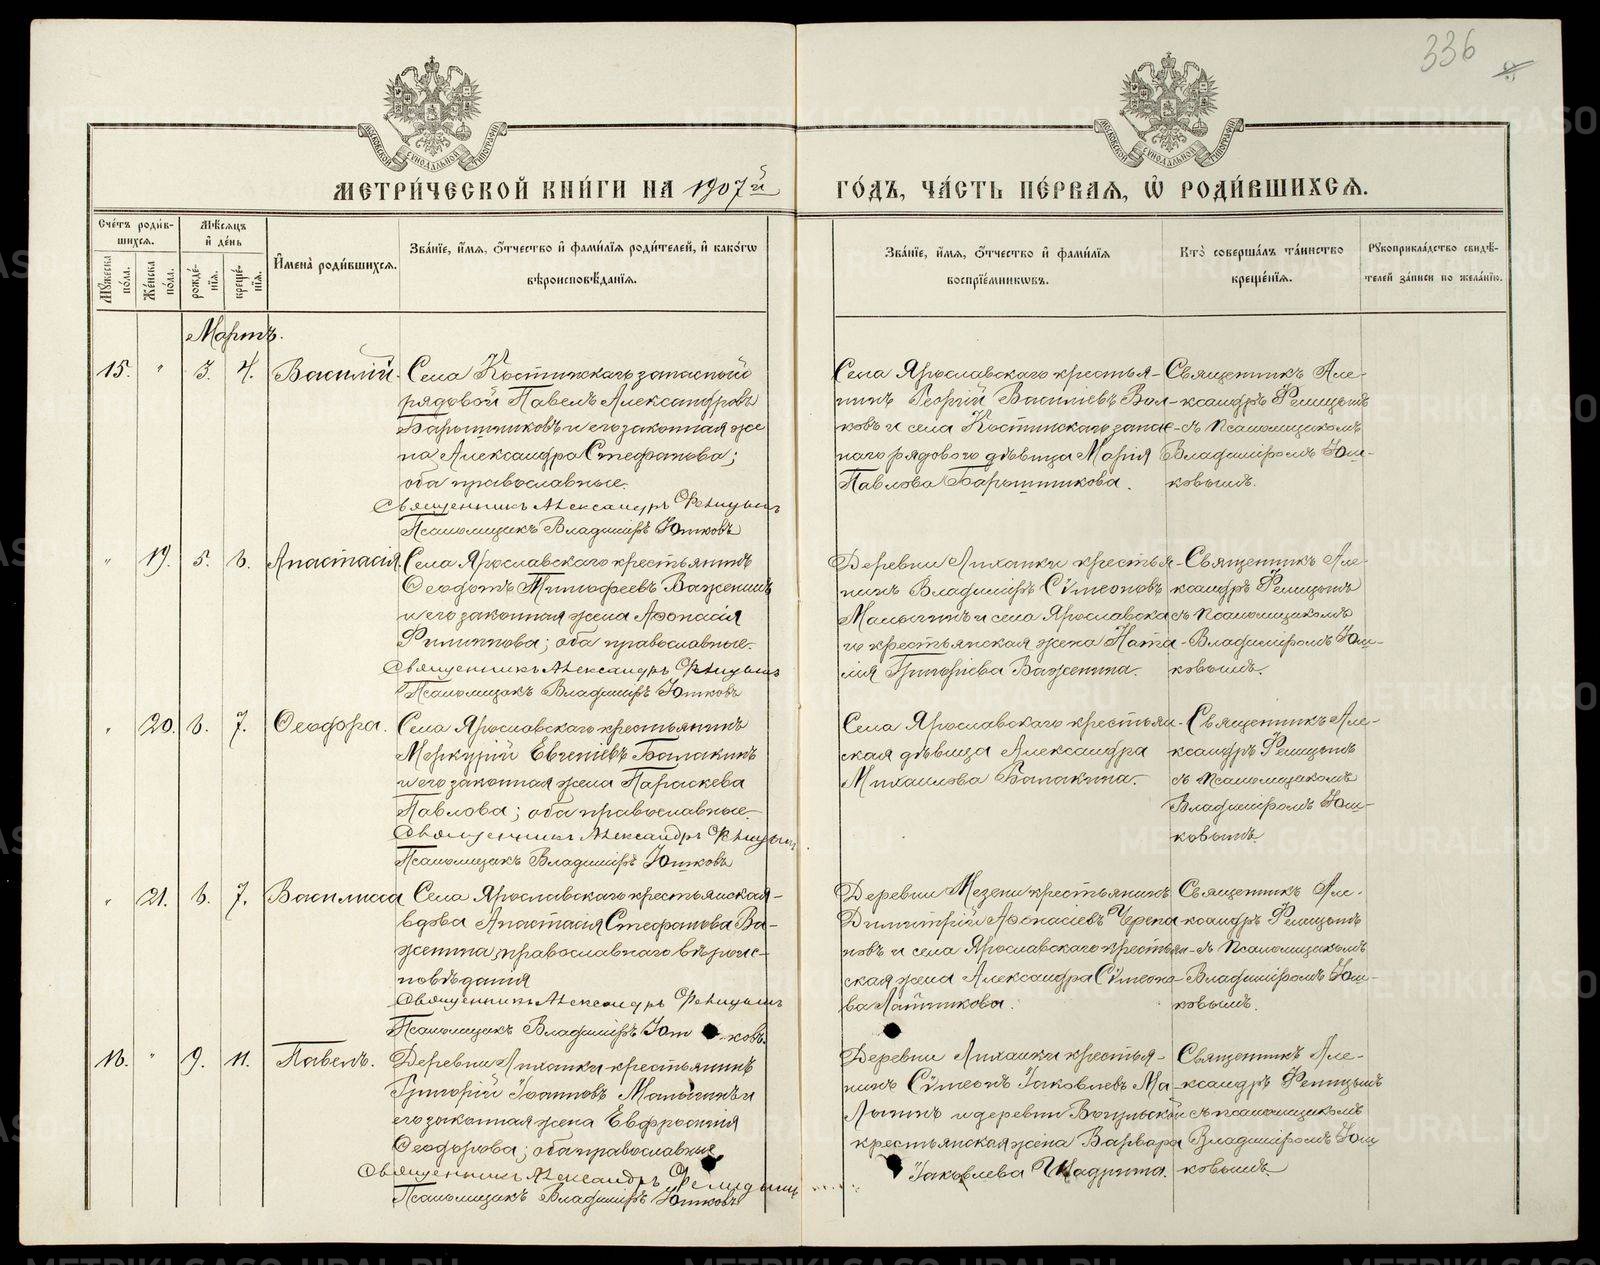 336
МОСКОВСКОЙ СѴНОДАЛЬНОЙ ТИПОГРАФІИ
МОСКОВСКОЙ СѴНОДАЛЬНОЙ ТИПОГРАФІИ
МЕТРИ́ЧЕСКОЙ КНИ́ГИ НА 1907й
ГО́ДЪ, ЧА́СТЬ ПЕ́РВАѦ, Ѽ РОДИ́ВШИХСѦ.
Сче́тъ роди́в-
шихсѧ.
Мѣ́сѧцъ
и҆ де́нь
Мꙋ́жеска
по́ла.
Же́нска
по́ла.
рожде́-
нїѧ.
креще́-
нїѧ.
И҆мена̀ роди́вшихсѧ.
Зва́нїе, и҆́мѧ, ѻ҆́тчество и҆ фами́лїѧ роди́телей, и҆ како́гѡ
вѣроисповѣ́данїѧ.
Зва́нїе, и҆́мѧ, ѻ҆́тчество и҆ фами́лїѧ
воспрїе́мникѡвъ.
Кто̀ соверша́лъ та́инство
креще́нїѧ.
Рꙋкоприкла́дство свидѣ́-
телей за́писи по жела́нїю.
Мартъ.
15. " 3. 4. Василій.
Села Костинскаго запасный
рядовой Павелъ Александровъ
Барышниковъ и его законная же
на, Александра Стефанова;
оба православные.
Священникъ Александръ
Псаломщикъ Владиміръ Юшковъ
Села Ярославскаго крестья-
нинъ Георгій Василіевъ Вол-
ковъ и села Костинскаго запас-
наго рядового дѣвица Марія
Павлова Барышникова.
Священникъ Але-
ксандръ
съ псаломщикомъ
Владиміромъ Юш-
ковымъ.
" 19. 5. 6. Анастасія.
Села Ярославскаго крестьянинъ
Ѳеодотъ Тимофеевъ Важенинъ
и его законная жена Аѳонасія
Филиппова; оба православные.
Священникъ Александръ
Псаломщикъ Владиміръ Юшковъ
Деревни Лиханки крестья-
нинъ Владиміръ Сѵмеоновъ
Малыгинъ и села Ярославска
го крестьянская жена Ната-
лія Григоріева Важенина.
Священникъ Але-
ксандръ
съ псаломщикомъ
Владиміромъ Юш-
ковымъ.
" 20. 6. 7. Ѳеодора.
Села Ярославскаго крестьянинъ
Меркурій Евгеніевъ Балакинъ
и его законная жена Параскева
Павлова; оба православные.
Священникъ Александръ
Псаломщикъ Владиміръ Юшковъ
Села Ярославскаго крестьян-
ская дѣвица Александра
Михаилова Балакина.
Священникъ Але-
ксандръ
съ псаломщикомъ
Владиміромъ Юш-
ковымъ.
" 21. 6. 7. Василисса
Села Ярославскаго крестьянская
вдова Анастасія Стефанова Ва-
женина, православнаго вѣроис-
повѣданія
Священникъ Александръ
Псаломщикъ Владиміръ Юш-ковъ.
Деревни Мезени крестьянинъ
Димитрій Аѳонасіевъ Черепа
новъ и села Ярославскаго крестьян-
ская жена Александра Сѵмеоно-
ва
Священникъ Але-
ксандръ
съ псаломщикомъ
Владиміромъ Юш-
ковымъ.
16. " 9. 11. Павелъ.
Деревни Лиханки крестьянинъ
Григорій Іоанновъ Малыгинъ и
его законная жена Евфросинія
Ѳеодорова; оба православные
Священникъ Александръ
Псаломщикъ Владиміръ Юшковъ
Деревни Лиханки крестья-
нинъ Сѵмеонъ Іаковлевъ Ма-
лыгинъ и деревни Вогульской
крестьянская жена Варвара
Іаковлева Шадрина.
Священникъ Але-
ксандръ
съ псаломщикомъ
Владиміромъ Юш
ковымъ
METRIKI.GASO-URAL.RU